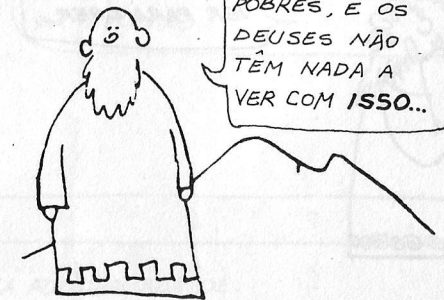 POBRES, E OS
DEUSES NÃO
TÊM NADA A
VER COM ISSO...